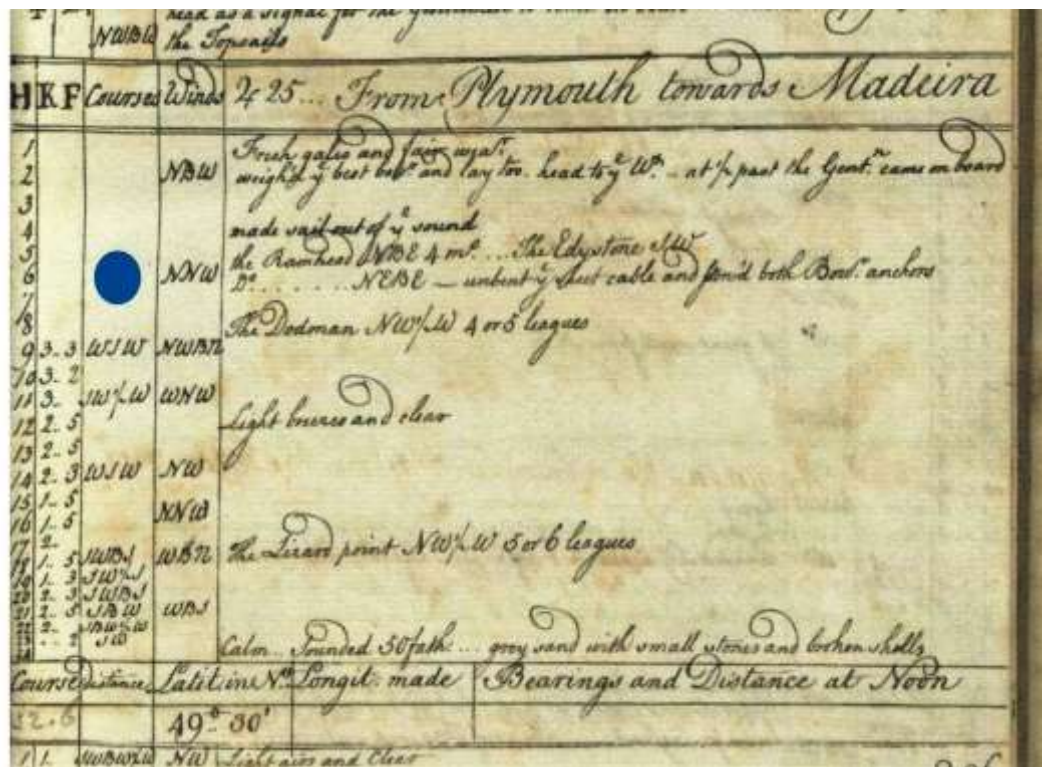 head as a signal for the
NWBW the Topsails
H K F Courses Winds ♃ 25... From Plymouth towards Madeira
1 Fresh gales and fair wear.
2 NBW weigh'd ye best bowr. and lay too head to ye Wd. - at ½ past the Gentn. came on board
3
4 made sail out of ye sound
5 the Ramhead NBE 4 ms... The Edystone SW
6 NNW Do. ....... NEBE — unbent ye sheet cable and ston'd both Bowr. anchors
7
8 The Dodman NW½W 4 or 5 leagues
9 3.. 3 WSW NWBN
10 3.. 2
11 3.. SW½W WNW
12 2.. 5 Light breezes and clear
13 2.. 5
14 2.. 3 WSW NW
15 1.. 5
16 1.. 5 NNW
17 2..
18 1.. 5 SWBS WBN The Lizard point NW½W 5 or 6 leagues
19 1.. 3 SW½S
20 2.. 3 SWBS
21 2.. 5 SBW WBS
22 2..
23 .. 2 SW
24 Calm.. Sounded 50 fath... grey sand with small stones and broken shells
Course distance Latit. in No. Longit. made Bearings and Distance at Noon
52.6 49° 30'
1 1.. SWBW½W NW Light airs and Clear